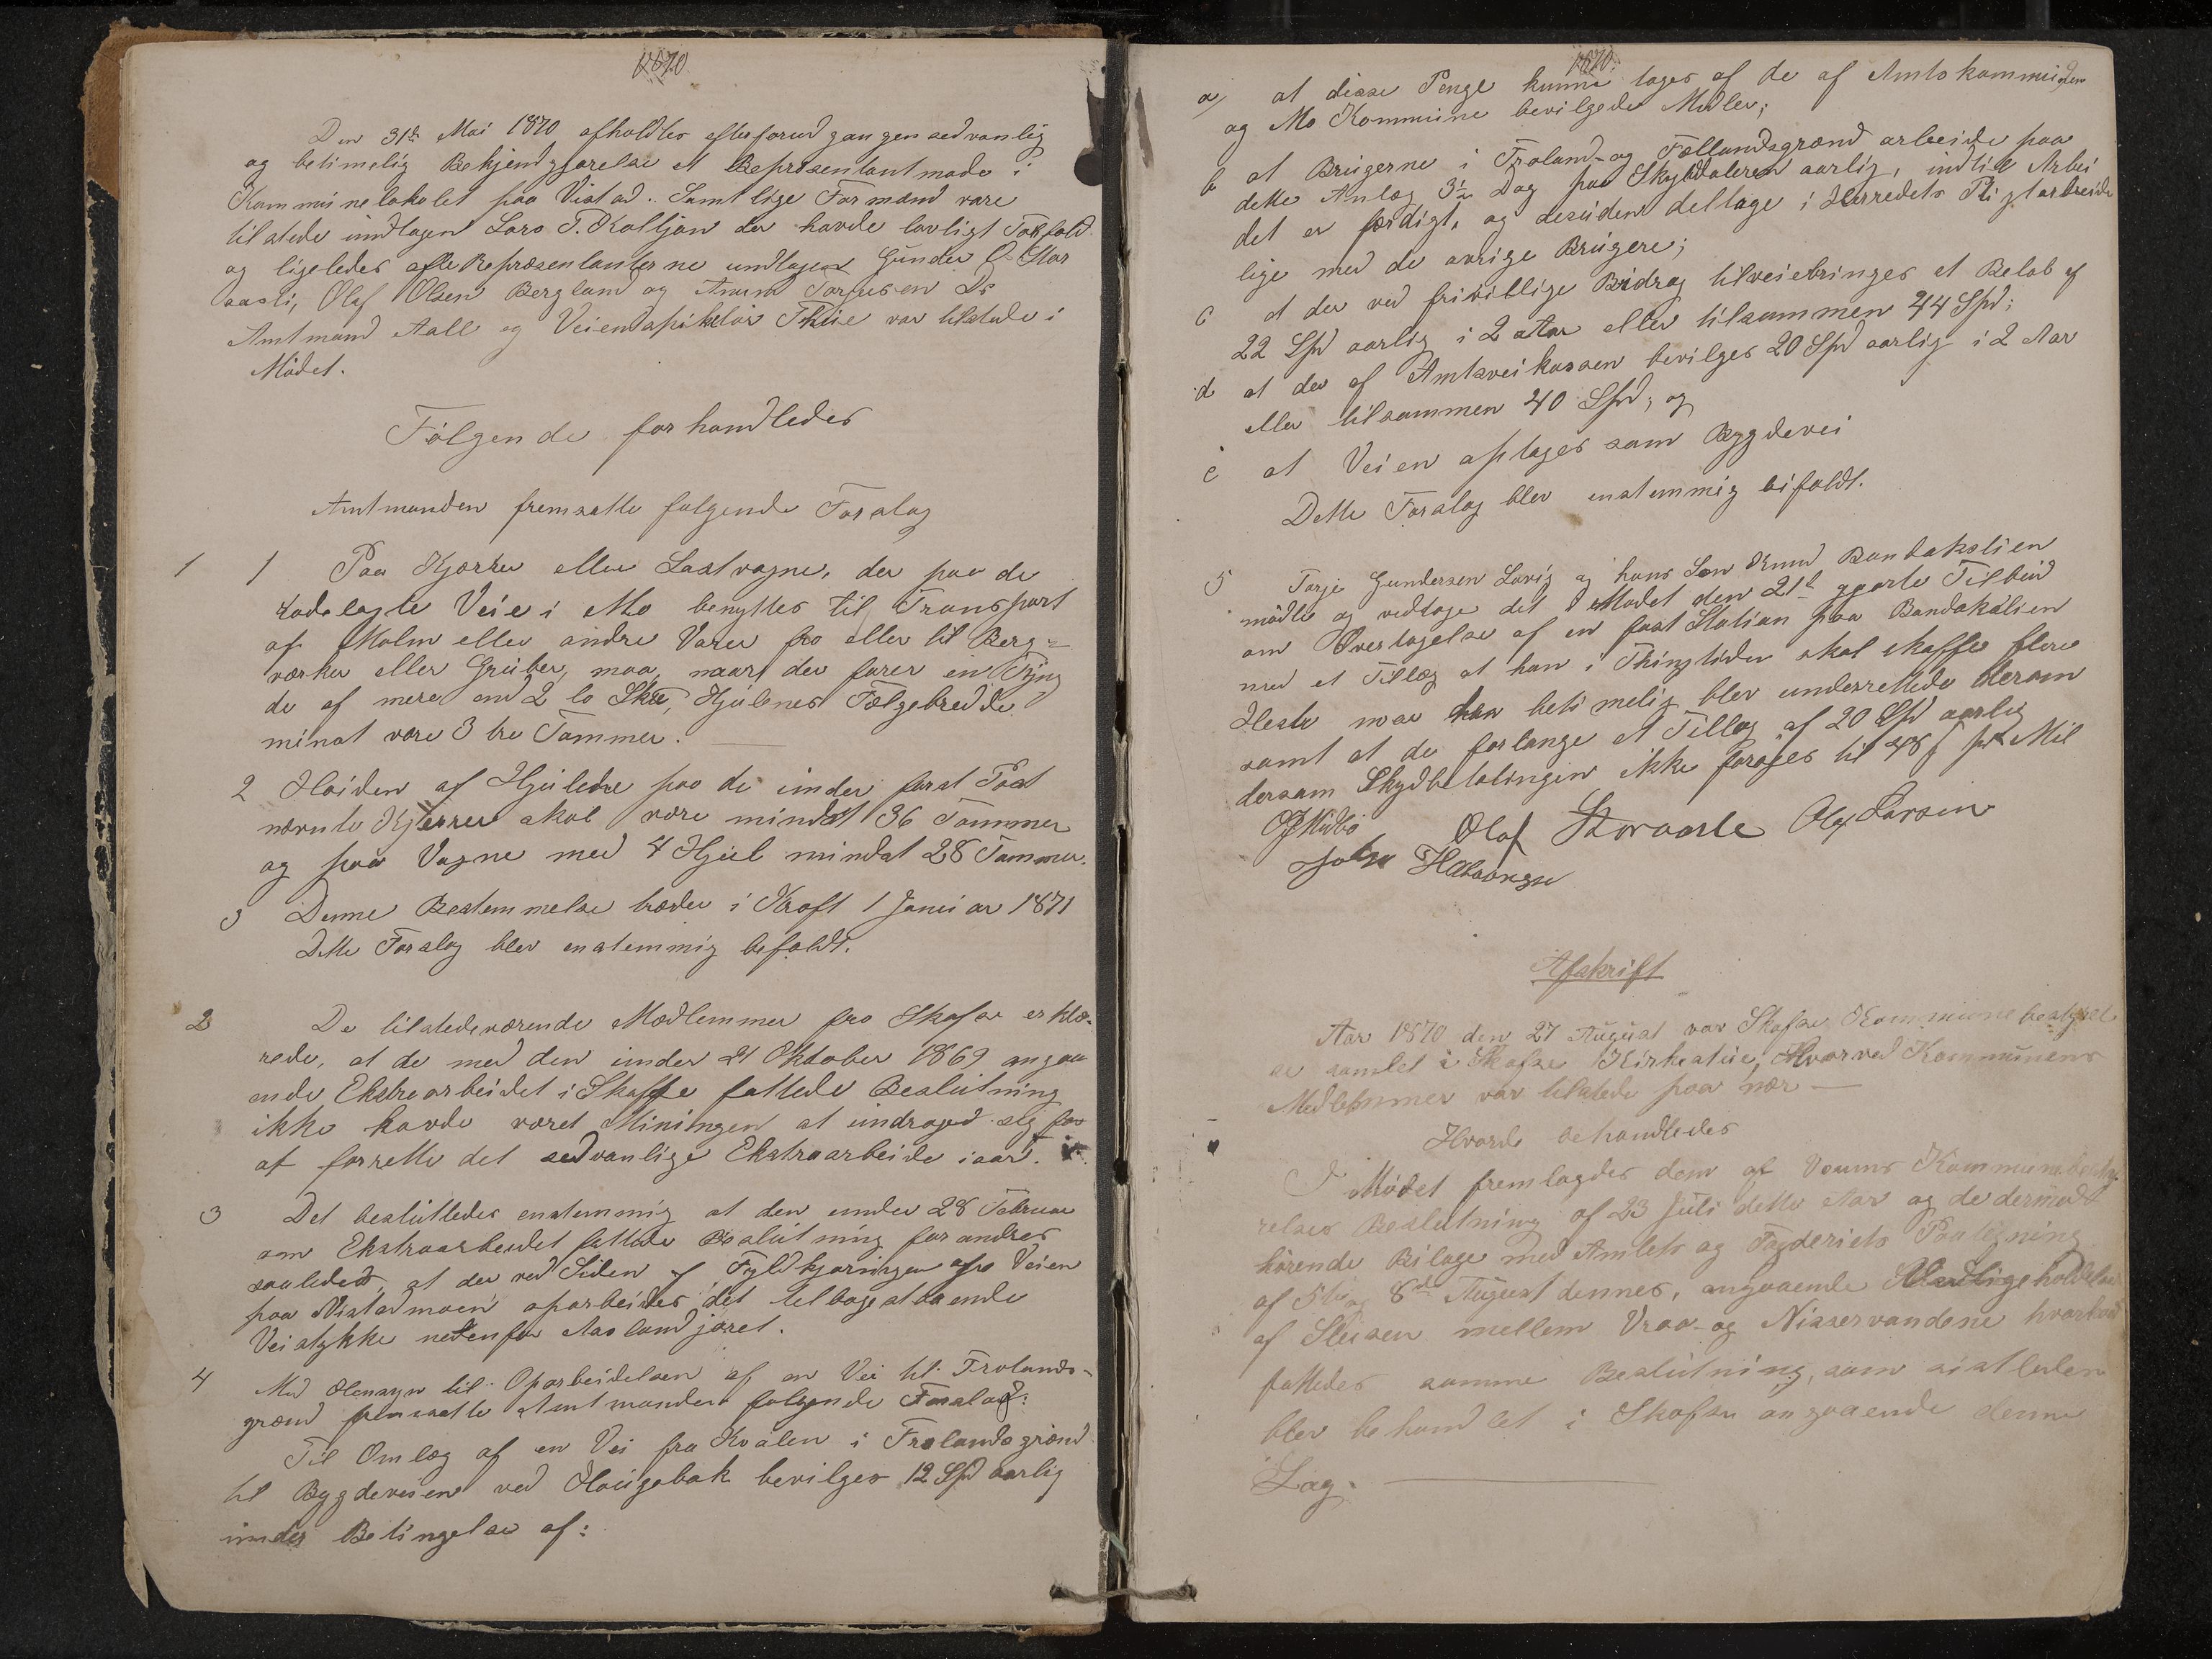 1870
Den 31te Mai 1870 afholdtes efter forud gangen sedvanlig
og betimelig Bekjendgjørelse et Repræsentantmøde i
Kommunelokalet paa Vistad. Samtlige Formænd vare
tilstede undtagen Lars T. Kolljon der havde lovligt Forfald
og ligeledes alle Repræsentanterne undtagen Gunder O. Stor
aasli, Olaf Olsen Bergland og Anund Torjusen Do
Amtmand Aall og Veiinspiktør Thue var tilstede i
Mødet.
Følgende forhandledes
Amtmanden fremsatte følgende Forslag
1 1 Paa Kjærrer eller Lastvogne, der paa de
rodelagte Veie i Mo benyttes til Transport
af Malm eller andre Varer fra eller til Berg-
værker eller Gruber, maa, naar der fører en Tyng
de af mere end 2 to Sk℔, Hjulenes Fælgebredde
minst være 3 tre Tommer.
2 Høiden af Hjulene paa de under først Post
nævnte Kjerrer skal være mindst 36 Tommer
og paa Vogne med 4 Hjul mindst 28 Tommer.
3 Denne Bestemmelse træder i Kraft 1 Januar 1871
Dette Forslag blev enstemmig bifaldt.
2 De tilstedeværende Medlemmer fra Skafse erklæ-
rede, at de med den under 21 Oktober 1869 angaa
ende Ekstraarbeidet i Skafse fattede Beslutning
ikke havde været Miningen at unddraged sig for
at forrette det sedvanlige Ekstraarbeide iaar.
3 Det besluttedes enstemmig at den under 28 Februar
om Ekstraarbeidet fattede Beslutning forandres
saaledes, at der ved Siden af Fyldkjøringen paa Veien
paa Vistadmoen oparbeides det tilbagestaaende
Veistykke nedenfor Aaslandjøret.
4 Med Hensyn til Oparbeidelsen af en Vei til Trolands-
grænd fremsatte Amtmanden følgende Forslag:
Til Omlæg af en Vei fra Kvalen i Trolandsgrænd
til Bygdeveien ved Haugebak bevilges 12 Spd aarlig
under Betingelse af:
1870 2
a, at disse Penge kunne tages af de af Amtskommunen
og Mo Kommune bevilgede Midler;
b at Brugerne i Troland- og Fællandsgrænd arbeide paa
dette Anlæg 3½ Dag paa Skylddaleren aarlig, indtil Arbei
det er færdigt, og desuden deltage i Herredets Pligtarbeide
lige med de øvrige Brugere;
c at der ved frivillige Bidrag tilveiebringes et Beløb af
22 Spd aarlig i 2 Aar eller tilsammen 44 Spd;
d at der af Amtsveikassen bevilges 20 Spd aarlig i 2 Aar
eller tilsammen 40 Spd; og
e at Veien optages som Bygdevei
Dette Forslag blev enstemmig bifaldt.
5 Torje Gundersen Lavig og hans Søn Knud Bandakslien
mødte og vedtoge det i Mødet den 21de gjorte Tilbud
om Overtagelse af en fast Station paa Bandakslien
med et Tillæg at han i Thingtider skal skaffe flere
Heste naar han betimelig blev underrettede derom
samt at de forlange et Tillæg af 20 Spd aarlig
dersom Skydsbetalingen ikke forøges til 48 ß pr Mil
Olaf Storaasle Olaf Larsen
Afskrift
Aar 1870 den 27 August var Skafse Kommunebestyrel
se samlet i Skafse Kirkestue, Hvorved Kommunens
Medlemmer var tilstede paa nær
Hvorda behandledes
I Mødet fremlagdes dem af Vraums Kommunebesty-
relses Beslutning af 23 Juli dette Aar og de dermed
hørende Bilage med Amtets og Fogderiets Paategning
af 5te og 8de August dennes, angaaende Vedligeholdelse
af Slusen mellem Vraa- og Nisservandene hvorhos
fattedes samme Beslutning, som sidstleden
blev behandlet i Skafse angaaende denne
Sag.